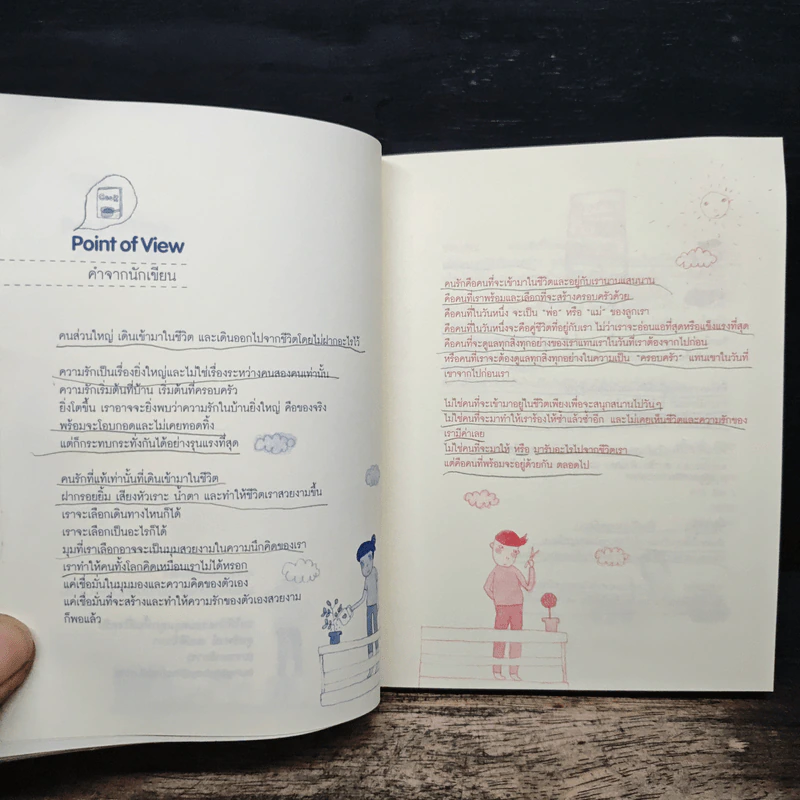 Point of View
คำจากนักเขียน
คนส่วนใหญ่ เดินเข้ามาในชีวิต และเดินออกไปจากชีวิตโดยไม่ฝากอะไรไว้
ความรักเป็นเรื่องยิ่งใหญ่และไม่ใช่เรื่องระหว่างคนสองคนเท่านั้น
ความรักเริ่มต้นที่บ้าน เริ่มต้นที่ครอบครัว
ยิ่งโตขึ้น เราอาจจะยิ่งพบว่าความรักในบ้านยิ่งใหญ่ คือของจริง
พร้อมจะโอบกอดและไม่เคยทอดทิ้ง
แต่ก็กระทบกระทั่งกันได้อย่างรุนแรงที่สุด
คนรักที่แท้เท่านั้นที่เดินเข้ามาในชีวิต
ฝากรอยยิ้ม เสียงหัวเราะ น้ำตา และทำให้ชีวิตเราสวยงามขึ้น
เราจะเลือกเดินทางไหนก็ได้
เราจะเลือกเป็นอะไรก็ได้
มุมที่เราเลือกอาจจะเป็นมุมสวยงามในความนึกคิดของเรา
เราทำให้คนทั้งโลกคิดเหมือนเราไม่ได้หรอก
แค่เชื่อมั่นในมุมมองและความคิดของตัวเอง
แค่เชื่อมั่นที่จะสร้างและทำให้ความรักของตัวเองสวยงาม
ก็พอแล้ว
คนรักคือคนที่จะเข้ามาในชีวิตและอยู่กับเรานานแสนนาน
คือคนที่เราพร้อมและเลือกที่จะสร้างครอบครัวด้วย
คือคนที่ในวันหนึ่ง จะเป็น "พ่อ" หรือ "แม่" ของลูกเรา
คือคนที่ในวันหนึ่งจะคือคู่ชีวิตที่อยู่กับเรา ไม่ว่าเราจะอ่อนแอที่สุดหรือแข็งแรงที่สุด
คือคนที่จะดูแลทุกสิ่งทุกอย่างของเราแทนเราในวันที่เราต้องจากไปก่อน
หรือคนที่เราจะต้องดูแลทุกสิ่งทุกอย่างในความเป็น "ครอบครัว" แทนเขาในวันที่
เขาจากไปก่อนเรา
ไม่ใช่คนที่จะเข้ามาอยู่ในชีวิตเพียงเพื่อจะสนุกสนานไปวันๆ
ไม่ใช่คนที่จะมาทำให้เราร้องไห้ซ้ำแล้วซ้ำอีก และไม่เคยเห็นชีวิตและความรักของ
เรามีค่าเลย
ไม่ใช่คนที่จะมาให้ หรือ มารับอะไรไปจากชีวิตเรา
แต่คือคนที่พร้อมจะอยู่ด้วยกัน ตลอดไป